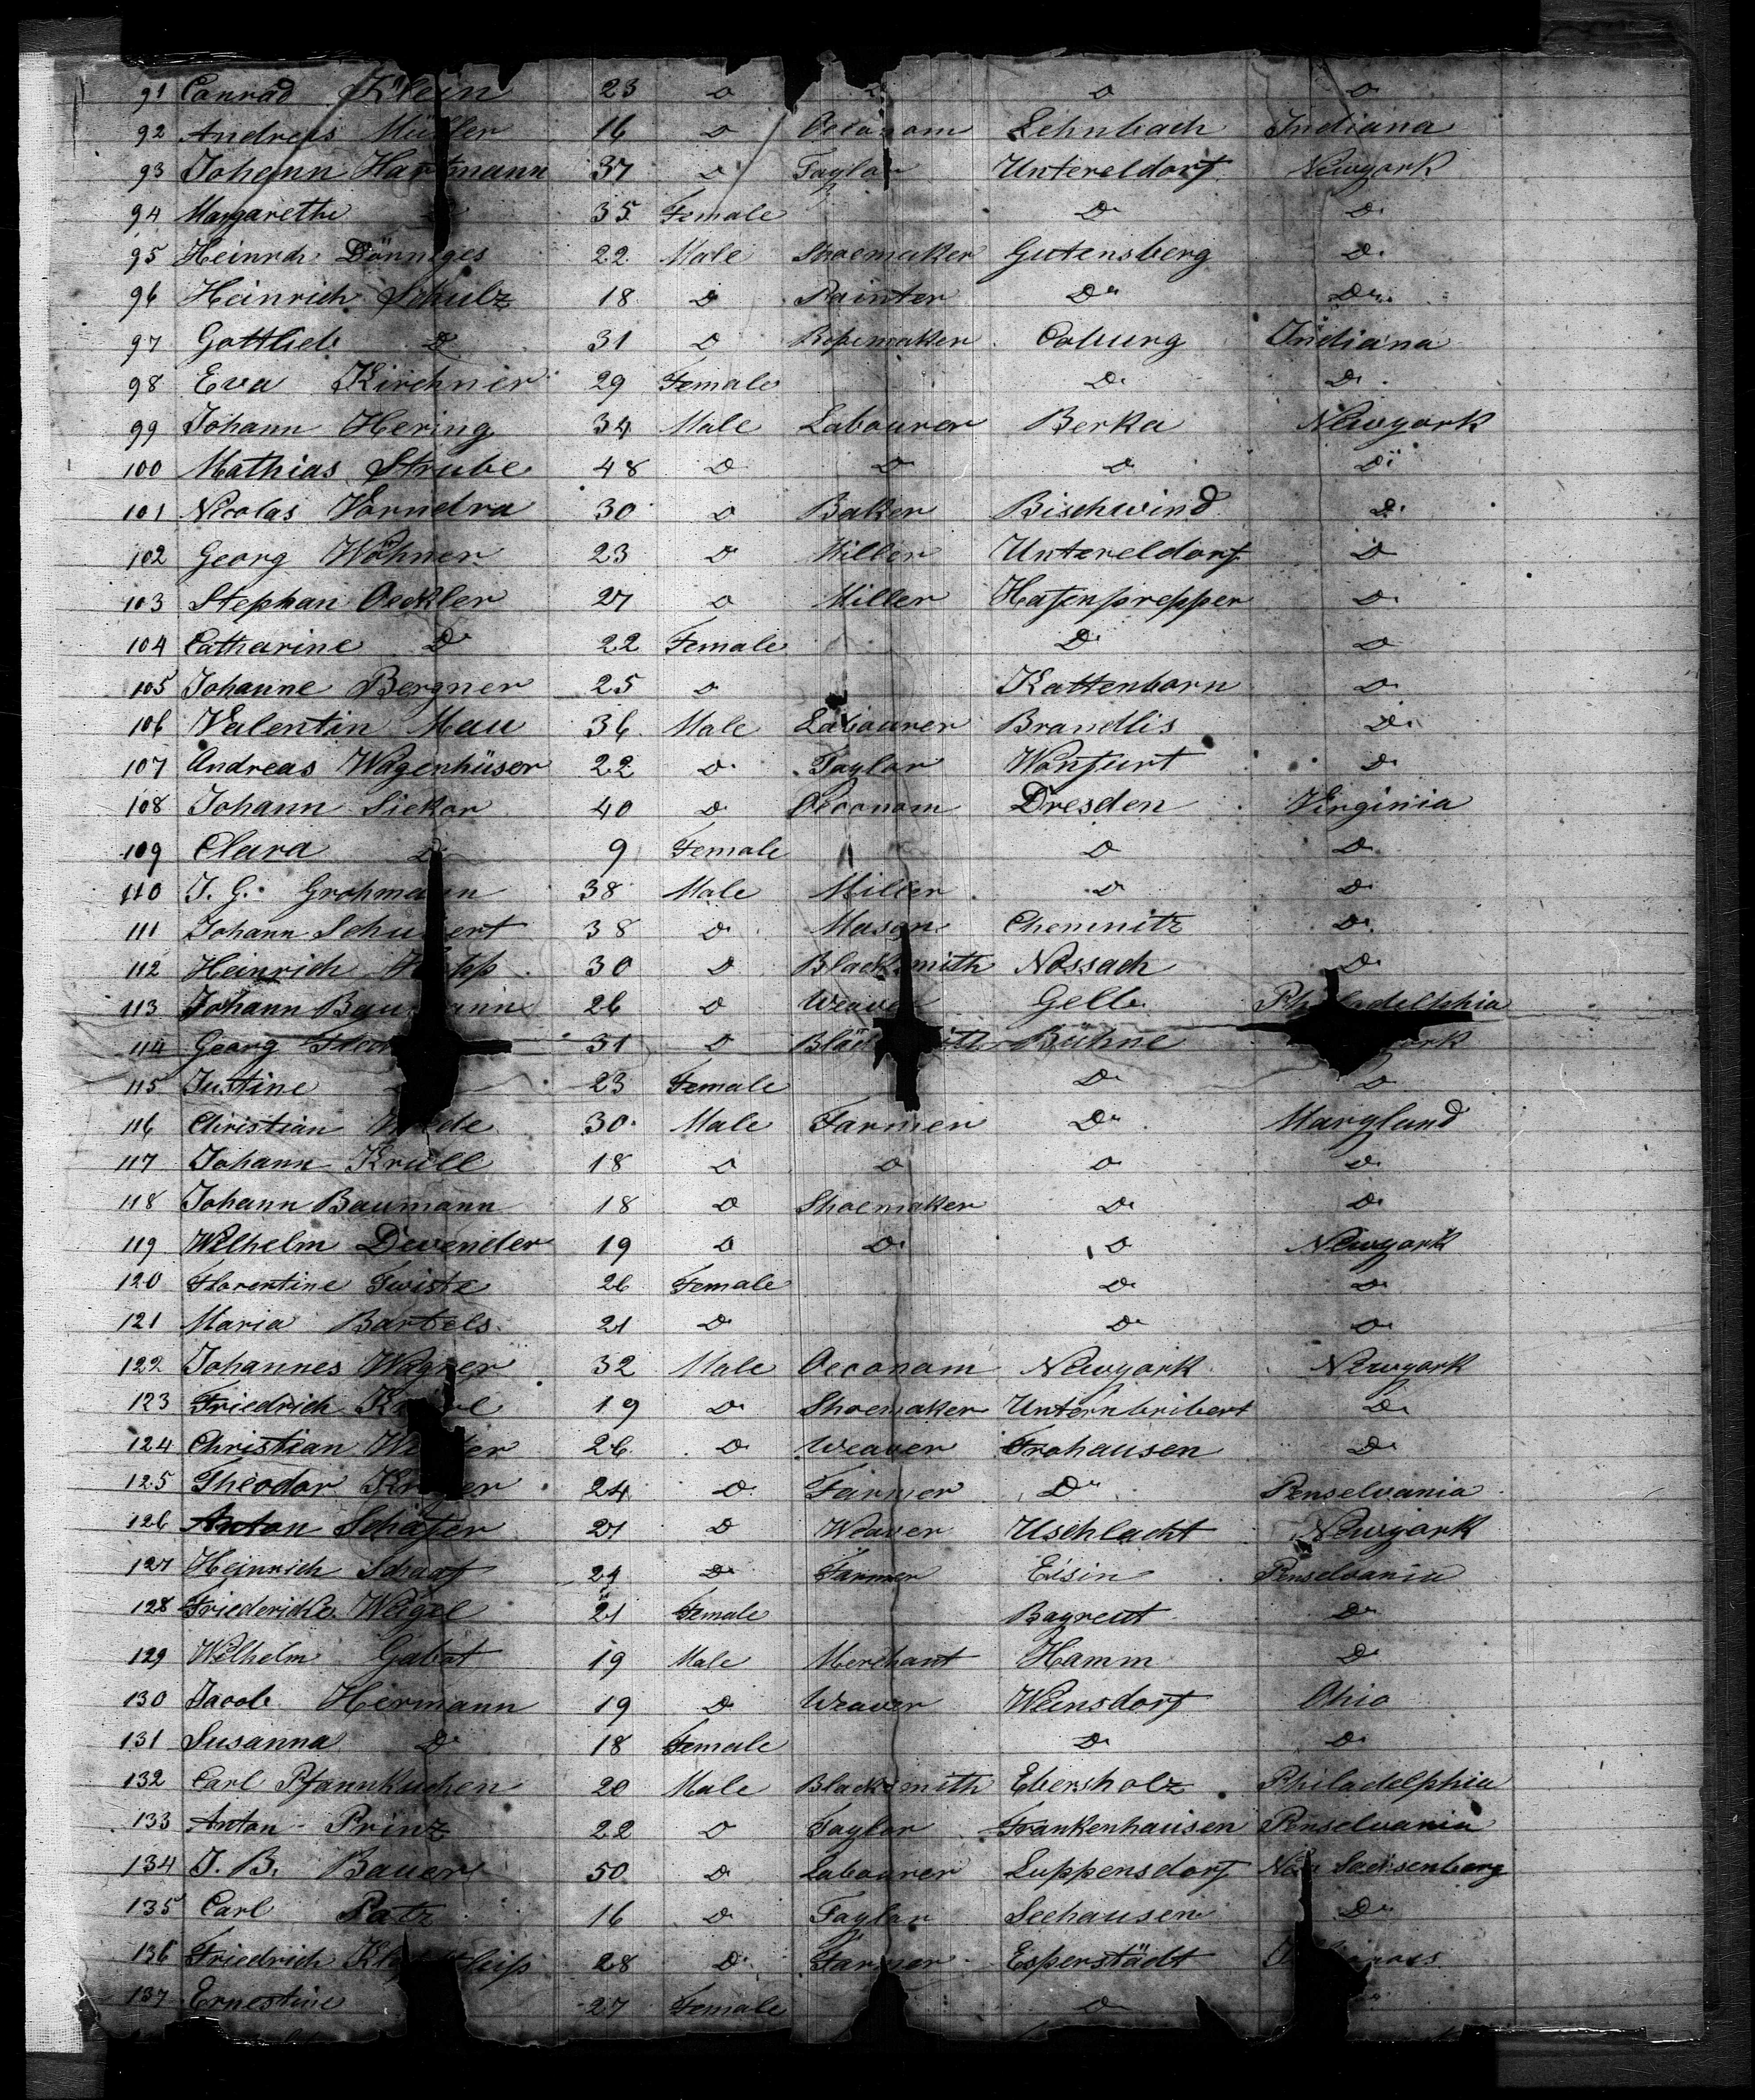 91 Conrad Klein 23 D D D D
92 Andreas Müller 16 D Oeconom Lehnbach Indiana
93 Johann Hartmann 37 D Taylor Untereldorf Newyork
94 Margarethe D 35 Female D D
95 Heinrch Dönniges 22 Male Shoemaker Gutensberg D
96 Heinrich Schulz 18 D Painter Do Do
97 Gottlieb D 31 D Ropemaker Coburg Indiana
98 Eva Kirchner 29 Female D D
99 Johann Hering 34 Male Labourer Berka Newyork
100 Mathias Strube 48 D D D D
101 Nicolas Vorndra 30 D Baker Bischwind D
102 Georg Wöhner 23 D Miller Untereldorf D
103 Stephan Oeckler 27 D Miller Hafenprepper D
104 Catharine D 22 Female D D
105 Johanne Bergner 25 D Kattenborn D
106 Valentin Mau 36 Male Labourer Brandlis D
107 Andreas Wagenhüser 22 D Taylor Wonfurt D
108 Johann Siekor 40 D Oeconom Dresden Virginia
109 Clara D 9 Female D D
110 J. G. Grohmann 38 Male Miller D D
111 Johann Schubert 38 D Mason Chemnitz D
112 Heinrich pp 30 D Blacksmith Nossach D
113 Johann Baumann 26 D Weaver Gelle Philadelphia
114 Georg 31 D Blacksmith Bühne ork
115 Justine 23 Female D D
116 Christian ede 30 Male Farmer Do Maryland
117 Johann Krull 18 D D D D
118 Johann Baumann 18 D Shoemaker D D
119 Wilhelm Devender 19 D D D Newyork
120 Florentine Twiste 26 Female D D
121 Maria Bartels 21 D D D
122 Johannes Wagner 32 Male Oeconom Newyork Newyork
123 Friedrich K l 19 D Shoemaker Unternbribert D
124 Christian We ter 26 D Weaver Frohausen D
125 Theodor Kr er 24 D Farmer Do Penselvania
126 Anton Schäfer 21 D Weaver Uschlacht Newyork
127 Heinrich Schaaf 24 D Farmer Eisin Penselvania
128 Friedericke Weigel 21 Female Bayreut D
129 Wilhelm Gabat 19 Male Merchant Hamm D
130 Jacob Hermann 19 D Weaver Weinsdorf Ohio
131 Susanna D 18 Female D D
132 Carl Pfannkuchen 20 Male Blacksmith Ebersholz Philadelphia
133 Anton Prinz 22 D Taylor Frankenhausen Penselvania
134 J. B. Bauer 50 D Labourer Luppensdorf Sachsenberg
135 Carl Patz 16 D Taylor Seehausen Do
136 Friedrich Kl leiss 28 D Farmer Esperstädt
137 Ernestine 27 Female D